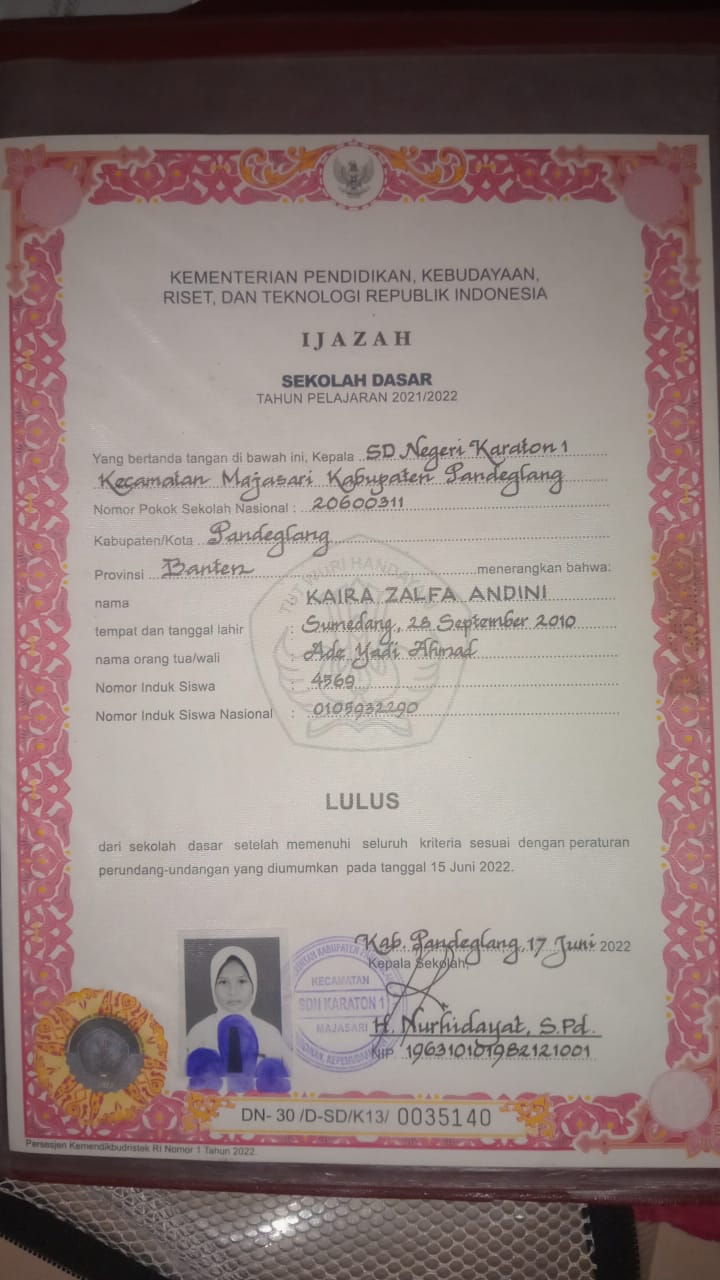 KEMENTERIAN PENDIDIKAN, KEBUDAYAAN,
RISET, DAN TEKNOLOGI REPUBLIK INDONESIA
IJAZAH
SEKOLAH DASAR
TAHUN PELAJARAN 2021/2022
Yang bertanda tangan di bawah ini, Kepala SD Negeri Karaton 1
Kecamatan Majasari Kabupaten Pandeglang
Nomor Pokok Sekolah Nasional : 20600311
Kabupaten/Kota Pandeglang
Provinsi Banten menerangkan bahwa:
TUT WURI HANDAYANI
nama : KAIRA ZALFA ANDINI
tempat dan tanggal lahir : Sumedang, 28 September 2010
nama orang tua/wali : Ade Yadi Ahmad
Nomor Induk Siswa : 4569
Nomor Induk Siswa Nasional : 0105932290
LULUS
dari sekolah dasar setelah memenuhi seluruh kriteria sesuai dengan peraturan
perundang-undangan yang diumumkan pada tanggal 15 Juni 2022.
Kab. Pandeglang, 17 Juni 2022
Kepala Sekolah,
KECAMATAN
SDN KARATON 1
MAJASARI
H. Nurhidayat, S.Pd.
NIP. 196310101982121001
DN- 30 /D-SD/K13/ 0035140
Persesjen Kemendikbudristek RI Nomor 1 Tahun 2022.